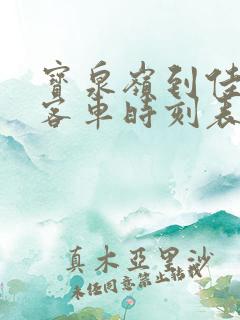 寶泉嶺到佳
客車時刻表
真木亞里沙
未經同意禁止轉載